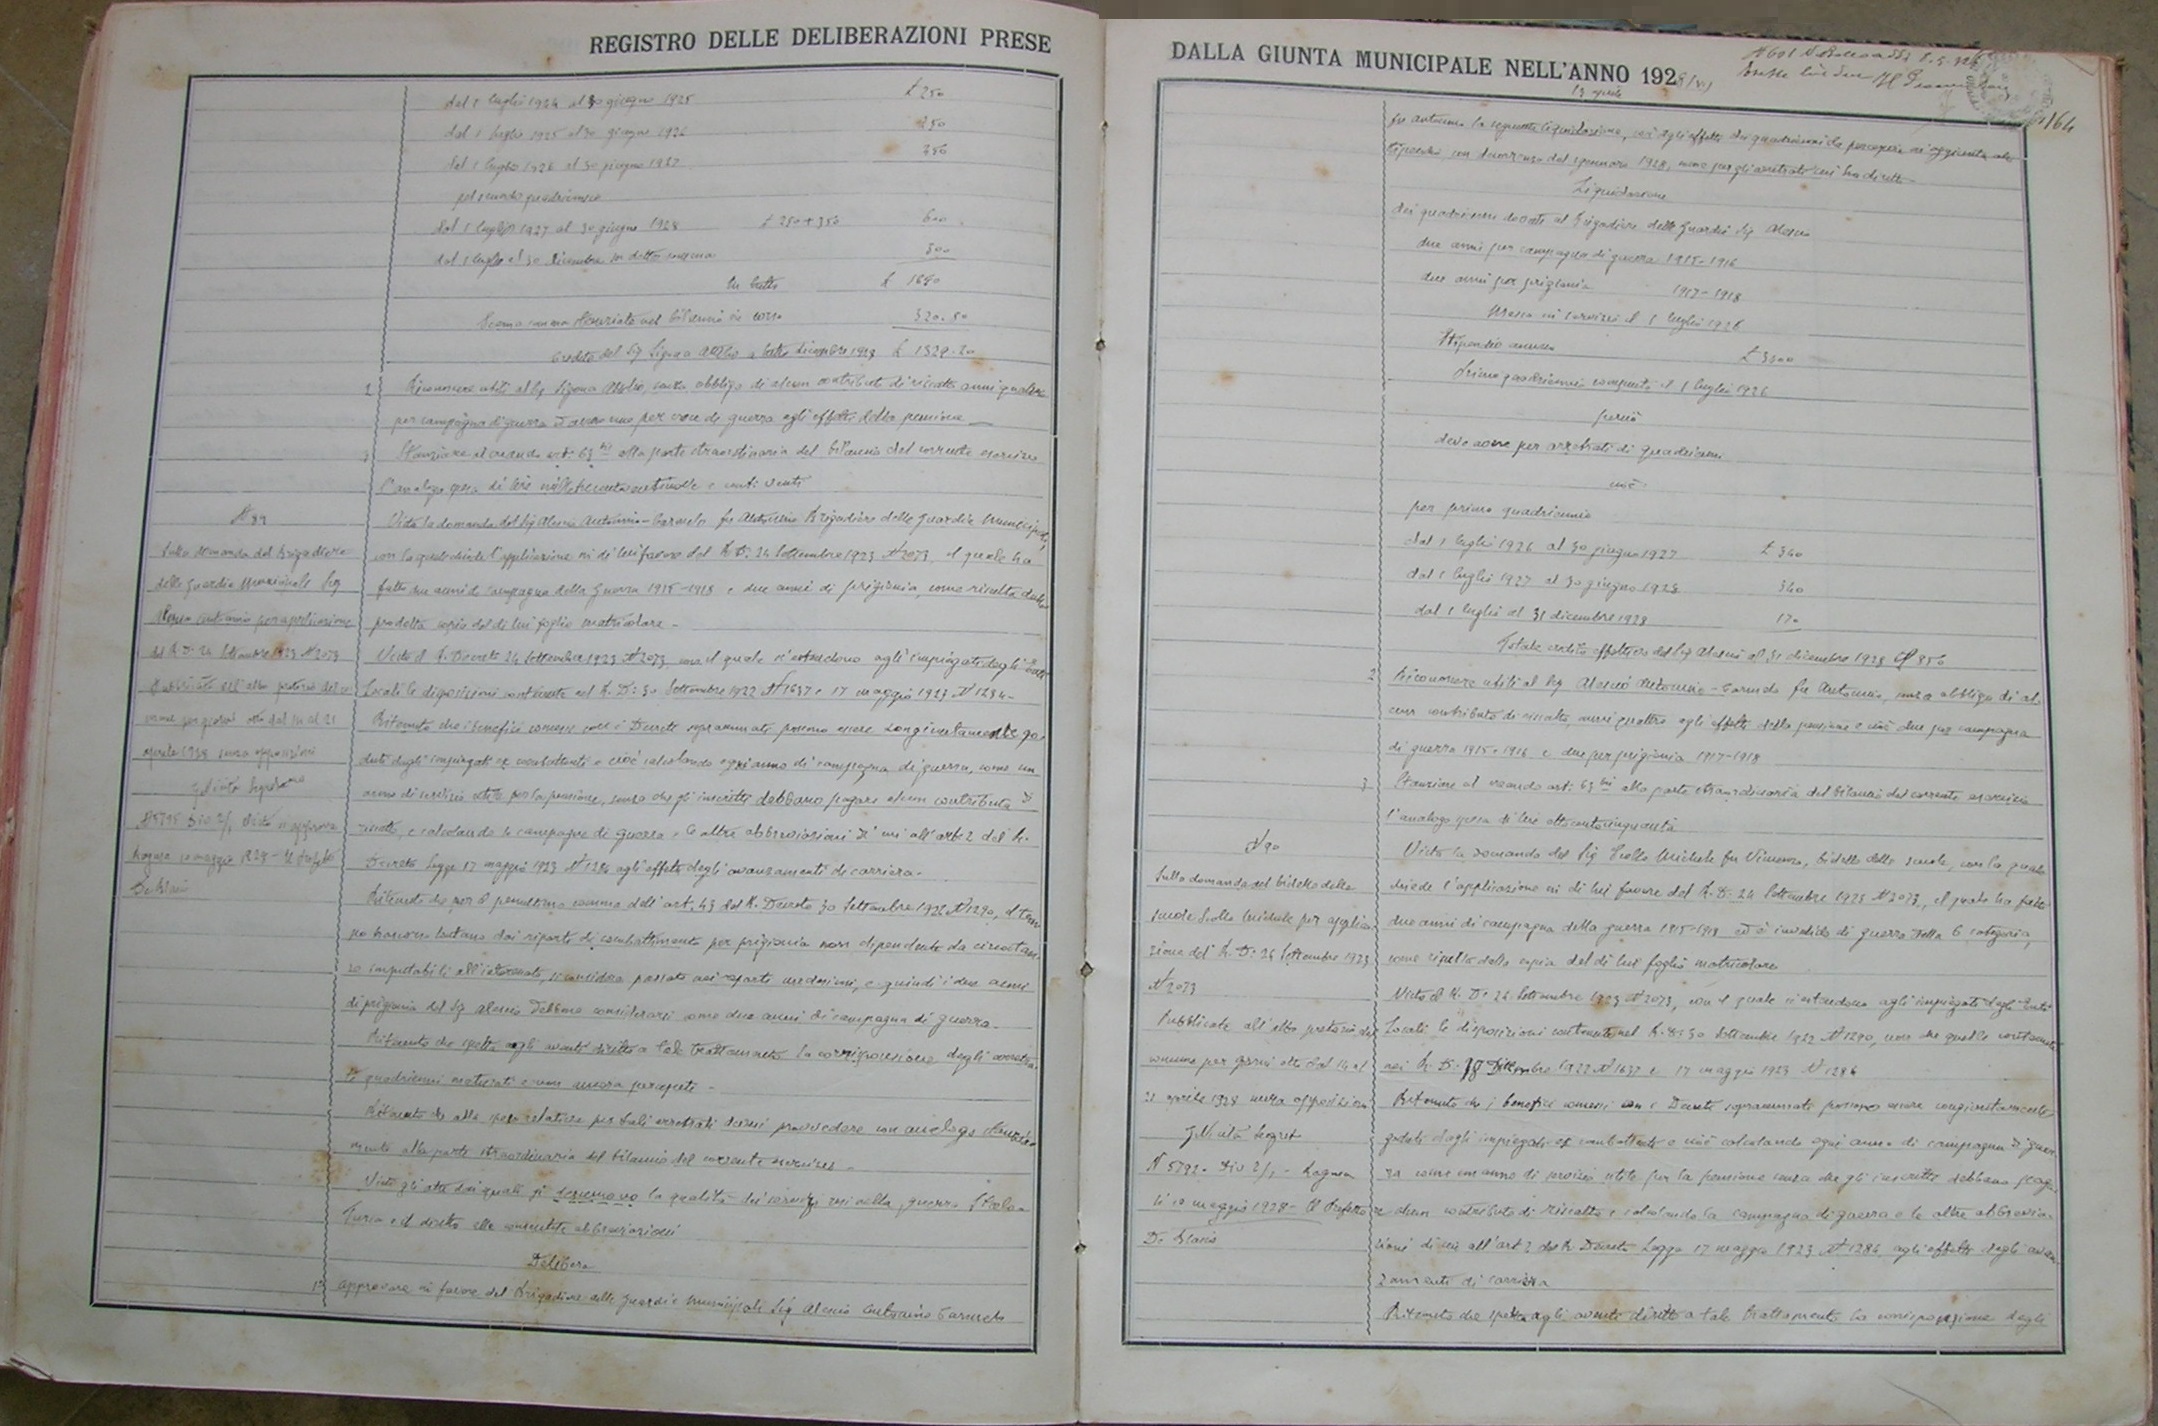 REGISTRO DELLE DELIBERAZIONI PRESE
dal 1 luglio 1924 al 30 giugno 1925 £ 250
dal 1 luglio 1925 al 30 giugno 1926 250
dal 1 luglio 1926 al 30 giugno 1927 250
pel secondo quadriennio
dal 1 luglio 1927 al 30 giugno 1928 £ 250+350 600
dal 1 luglio al 30 dicembre in detta
In tutto £ 1650
Somma stanziata nel bilancio in corso 320.80
Credito del Sig a tutto dicembre 1928 £ 1329.20
2 Riconoscere utili al Sig senza obbligo di alcun contributo di riscatto anni quattro
per campagna di guerra ed anno uno per croce di guerra agli effetti della pensione
3 Stanziare al creando art: 63 bis alla parte straordinaria del bilancio del corrente esercizio
l'analoga spesa di lire milletrecentoventinove e centi venti
N 89
Sulla domanda del Brigadiere
delle Guardie Municipali Sig
Alescio Antonino per applicazione
del R. D. 24 Settembre 1923 N 2073
Pubblicata all'albo pretorio del co
mune per giorni otto dal 14 al 21
aprile 1928 senza opposizioni
N 5795 Div 2/1 Visto si approva
Ragusa 10 maggio 1928 - Il Prefetto
De Blasio
Vista la domanda del Sig Alescio Antonino-Carmelo fu Antonino Brigadiere delle Guardie Municipali,
con la quale chiede l'applicazione in di lui favore del R. D: 24 Settembre 1923 N 2073, il quale ha
fatto due anni di campagna della guerra 1915-1918 e due anni di prigionia come risulta dalla
prodotta copia del di lui foglio matricolare -
Visto il R. Decreto 24 Settembre 1923 N 2073, con il quale si estendono agli impiegati degli Enti
Locali le disposizioni contenute nel R. D: 30 Settembre 1922 N 1637 e 17 maggio 1923 N 1284-
Ritenuto che i benefici concessi con i Decreti soprannunciati possono essere congiuntamente go-
duti dagli impiegati ex combattenti e cioè calcolando ogni anno di campagna di guerra, come un
anno di servizio utile per la pensione, senza che gli inscritti debbano pagare alcun contributo di
riscatto, e calcolando le campagne di guerra e le altre abbreviazioni di cui all'art: 2 del R.
Decreto Legge 17 maggio 1923 N 1284 agli effetti degli avanzamenti di carriera.
Ritenuto che per il penultimo comma dell'art. 43 del R. Decreto 30 Settembre 1922 N 1290, il tem
po trascorso lontano dai reparti di combattimento per prigionia non dipendente da circostan
ze imputabili all'interessato, si considera passato nei reparti medesimi, e quindi i due anni
di prigionia del Sig Alescio debbono considerarsi come due anni di campagna di guerra.
Ritenuto che spetta agli aventi diritto a tale trattamento la corrisposizione degli arretra
ti quadrienni maturati e non ancora percepiti -
Ritenuto che alla spesa relativa per tali arretrati devesi provvedere con analogo stanzia
mento alla parte straordinaria del bilancio del corrente esercizio -
Visti gli atti dai quali si desumono la qualità dei servizi resi nella guerra Italo-
Turca e il diritto alle consentite abbreviazioni
Delibera
1° approvare in favore del Brigadiere delle guardie municipali Sig Alescio Antonino Carmelo
DALLA GIUNTA MUNICIPALE NELL'ANNO 1928/VI)
13 aprile
164
fu Antonino la seguente liquidazione, agli effetti dei quadrienni da percepire in aggiunta allo
stipendio con decorrenza dal gennaro 1928, come per gli arretrati cui ha diritto
Liquidazione
dei quadrienni dovuti al Brigadiere delle Guardie Sig Alescio
due anni per campagna di guerra 1915-1916
due anni per prigionia 1917-1918
Messo in servizio il 1 luglio 1926
Stipendio annuo £ 3400
Primo quadriennio compiuto il 1 luglio 1926
perciò
deve avere per arretrati di quadrienni
cioè
per primo quadriennio
dal 1 luglio 1926 al 30 giugno 1927 £ 340
dal 1 luglio 1927 al 30 giugno 1928 340
dal 1 luglio al 31 dicembre 1928 170
Totale credito effettivo del Sig Alescio al 31 dicembre 1928 £ 850
2 Riconoscere utili al Sig Alescio Antonino-Carmelo fu Antonino, senza obbligo di al-
cun contributo di riscatto, anni quattro agli effetti della pensione e cioè due per campagna
di guerra 1915-1916 e due per prigionia 1917-1918
3 Stanziare al creando art: 63 bis alla parte straordinaria del bilancio del corrente esercizio
l'analoga spesa di lire ottocentocinquanta
N 90
Sulla domanda del bidello delle
scuole Michele per applica
zione del R. D: 24 Settembre 1923
N 2073
Pubblicata all'albo pretorio del
comune per giorni otto dal 14 al
21 aprile 1928 senza opposizioni
N 5792. Div 2/1 - Ragusa
li 10 maggio 1928 - Il Prefetto
De Blasio
Vista la domanda del Sig Michele fu Vincenzo, bidello delle scuole, con la quale
chiede l'applicazione in di lui favore del R. D: 24 Settembre 1923 N 2073, il quale ha fatto
due anni di campagna della guerra 1915-1918 ed è invalido di guerra della 6 categoria,
come risulta dalla copia del di lui foglio matricolare
Visto il R. D: 24 Settembre 1923 N 2073, con il quale si estendono agli impiegati degli Enti
Locali le disposizioni contenute nel R. D: 30 Settembre 1922 N 1290, non che quelle contenute
nei R. D: 18 Dicembre 1922 N 1637 e 17 maggio 1923 N 1284
Ritenuto che i benefici concessi con i Decreti soprannunciati possono essere congiuntamente
goduti dagli impiegati ex combattenti e cioè calcolando ogni anno di campagna di guer
ra come un anno di servizio utile per la pensione senza che gli inscritti debbano paga
re alcun contributo di riscatto e calcolando la campagna di guerra e le altre abbrevia-
zioni di cui all'art 2 del R Decreto Legge 17 maggio 1923 N 1284 agli effetti degli avan
zamenti di carriera
Ritenuto che spetta agli aventi diritto a tale trattamento la corrisposizione degli